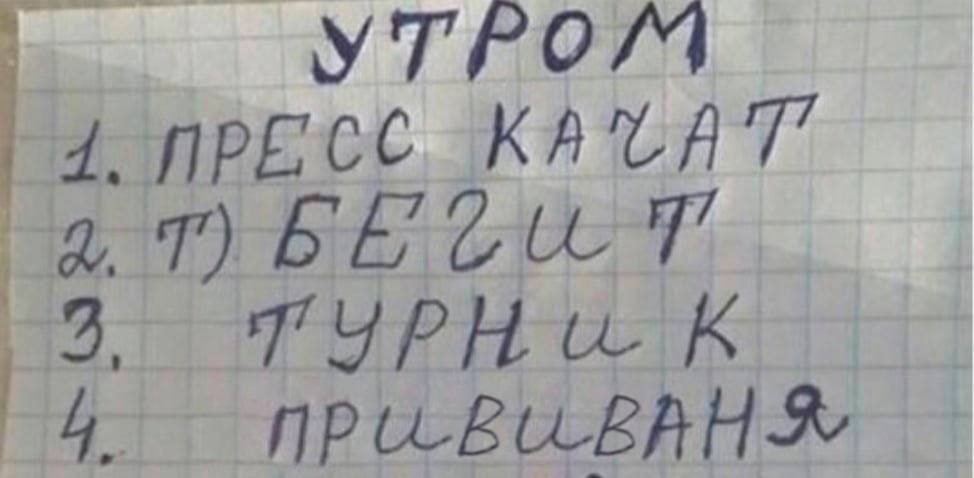 УТРОМ
1. ПРЕСС КАЧАТ
2. Т) БЕГИТ
3. ТУРНИК
4. ПРИВИВАНЯ